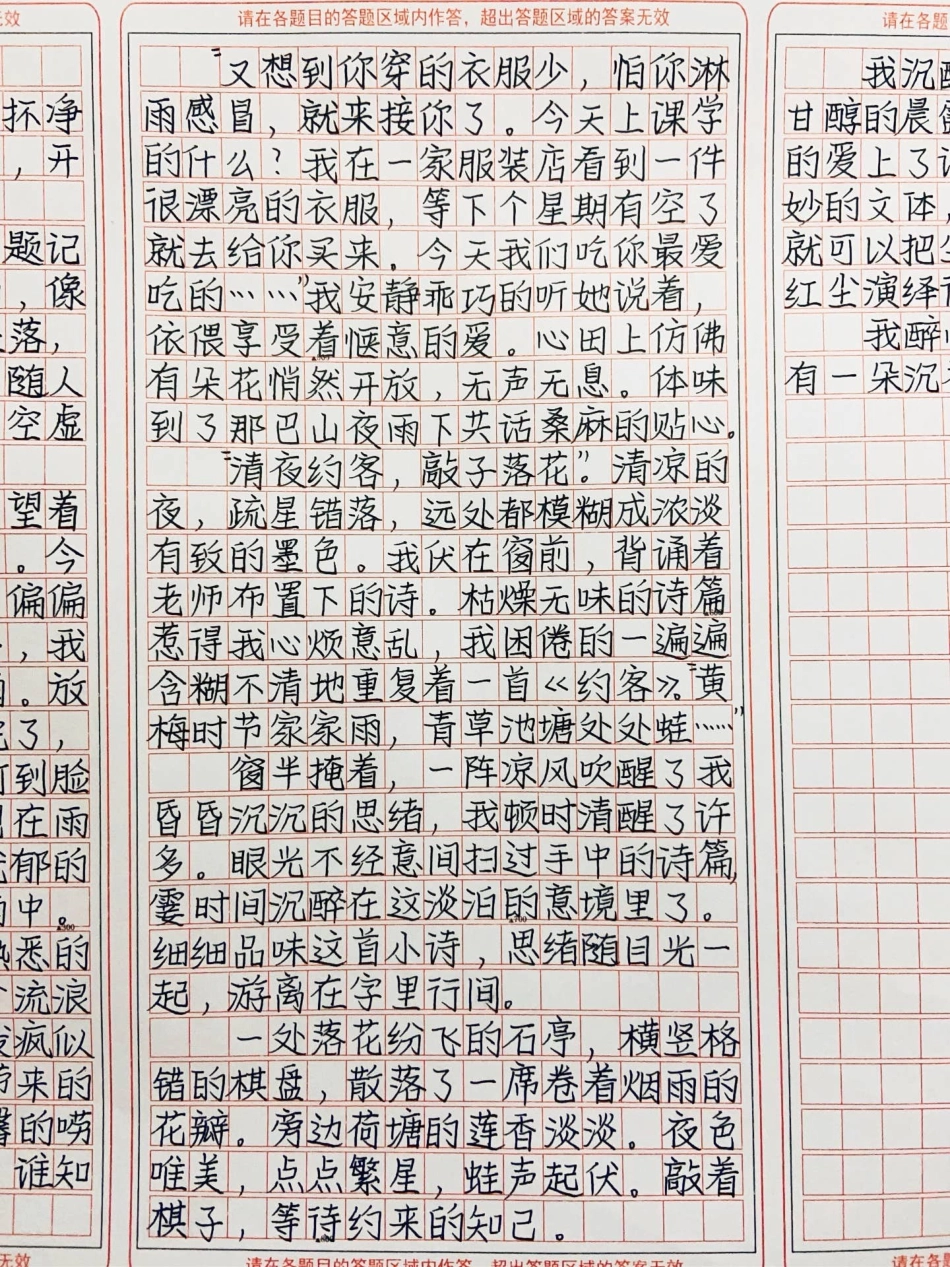 效
抔净
，开
题记
，像
落，
随人
空虚
望着
。今
偏偏
，我
。放
了，
到脸
在雨
郁的
中。
▲300
悉的
流浪
疯似
来的
的唠
谁知
无效
请在各题目的答题区域内作答，超出答题区域的答案无效
“又想到你穿的衣服少，怕你淋
雨感冒，就来接你了。今天上课学
的什么？我在一家服装店看到一件
很漂亮的衣服，等下个星期有空了
就去给你买来。今天我们吃你最爱
吃的……”我安静乖巧的听她说着，
依偎享受着惬意的爱。心田上仿佛
有朵花悄然开放，无声无息。体味
到了那巴山夜雨下共话桑麻的贴心。
“清夜约客，敲子落花”。清凉的
夜，疏星错落，远处都模糊成浓淡
有致的墨色。我伏在窗前，背诵着
老师布置下的诗。枯燥无味的诗篇
惹得我心烦意乱，我困倦的一遍遍
含糊不清地重复着一首《约客》。“黄
梅时节家家雨，青草池塘处处蛙……”
窗半掩着，一阵凉风吹醒了我
昏昏沉沉的思绪，我顿时清醒了许
多。眼光不经意间扫过手中的诗篇，
霎时间沉醉在这淡泊的意境里了。
▲700
细细品味这首小诗，思绪随目光一
起，游离在字里行间。
一处落花纷飞的石亭，横竖格
错的棋盘，散落了一席卷着烟雨的
花瓣。旁边荷塘的莲香淡淡。夜色
唯美，点点繁星，蛙声起伏。敲着
棋子，等待约来的知己。
请在各题目的答题区域内作答，超出答题区域的答案无效
请在各题
我沉醉
甘醇的晨
的爱上了
妙的文体
就可以把
红尘演绎
我醉
有一朵沉
请在各题